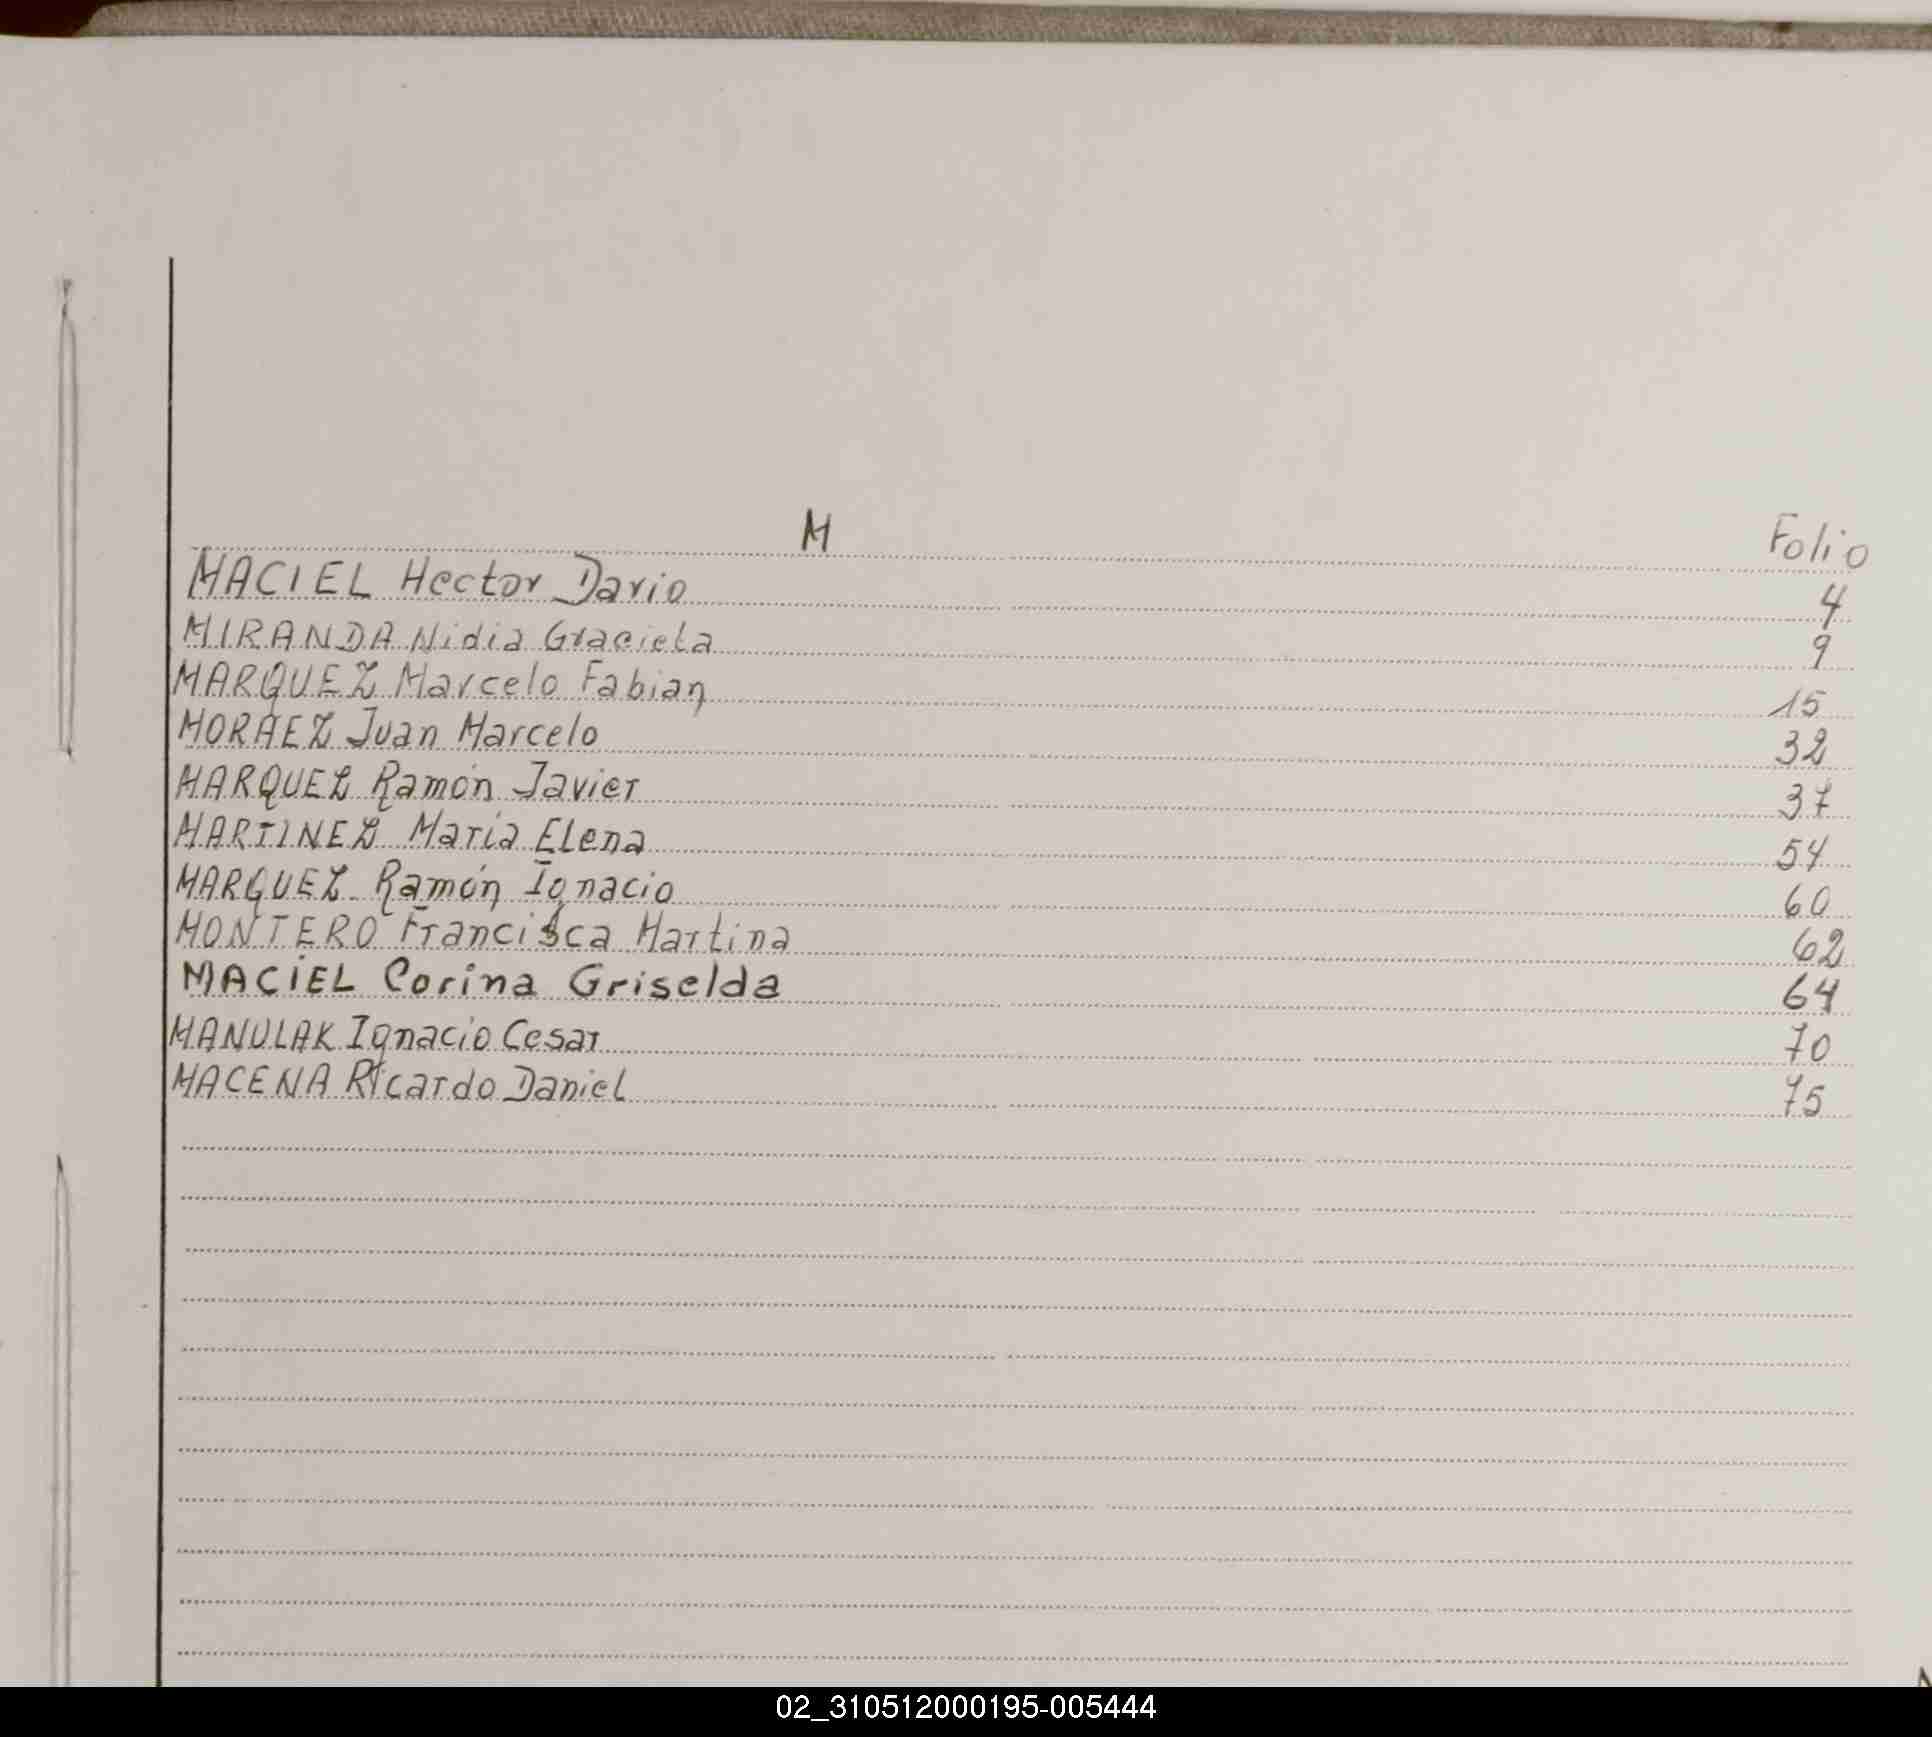 M Folio
MACIEL Hector Dario 4
MIRANDA Nidia Graciela 9
MARQUEZ Marcelo Fabian 15
MORAEZ Juan Marcelo 32
MARQUEZ Ramón Javier 37
MARTINEZ Maria Elena 54
MARQUEZ Ramón Ignacio 60
MONTERO Francisca Martina 62
MACIEL Corina Griselda 64
MANULAK Ignacio Cesar 70
MACENA Ricardo Daniel 75
02_310512000195-005444